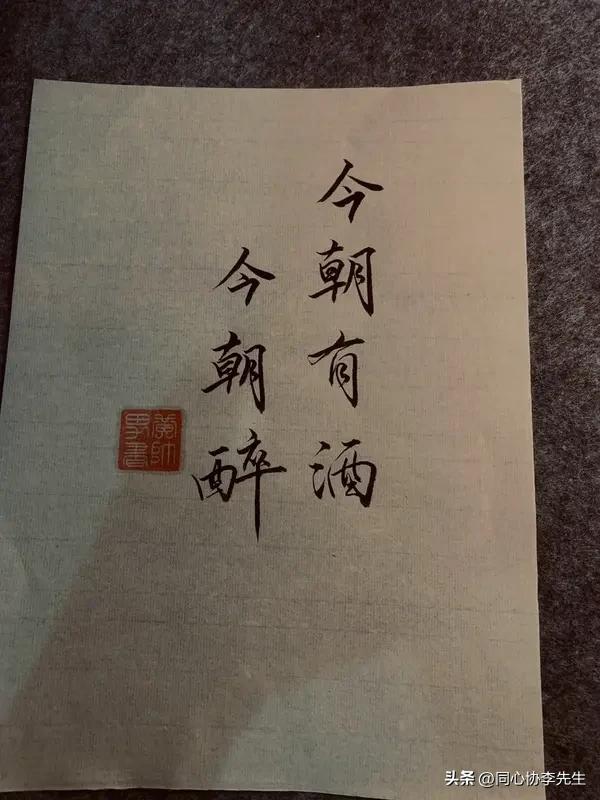 今朝有酒
今朝醉
头条 @同心协李先生